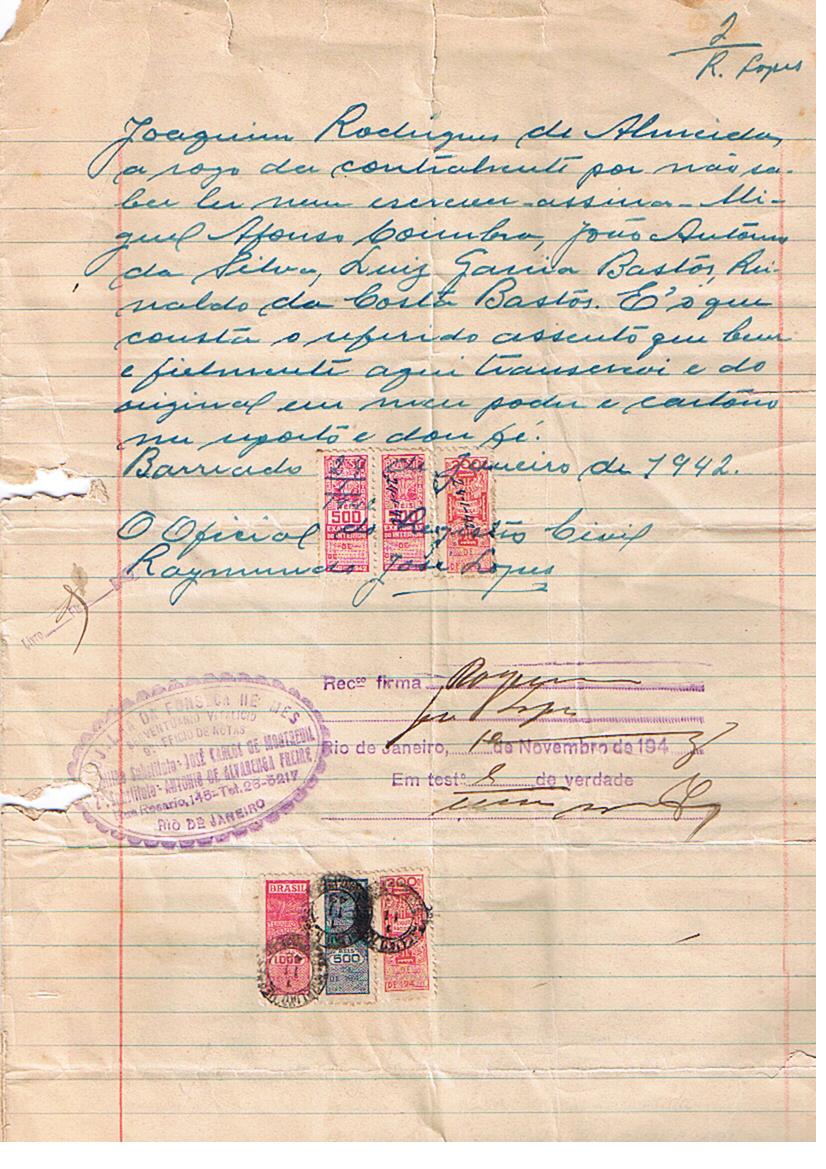 2
R. Lopes
Joaquim Rodrigues de Almeida,
a rogo da contrahente por não sa-
ber ler nem escrever assina- Mi-
guel Afonso Coimbra, João Antônio
da Silva, Luiz Garcia Bastos, Rei-
naldo da Costa Bastos. E' o que
consta o referido assento que bem
e fielmente aqui transcrevi e do
original em meu poder e cartório
me reporto e dou fé.
Barriado Janeiro de 1942.
500
O Oficial do Registro Civil
Raymundo José Lopes
Livro Fls
Recᶜᵒ firma Raymundo
José Lopes
Rio de Janeiro, 10 de Novembro de 194
Em testº de verdade
FONSECA
SERVENTUARIO VITALICIO
OFFICIO DE NOTAS
Substituto - JOSÉ CARLOS DE MONTREUIL
2º Substituto - ANTONIO DE ALVARENGA FREIRE
Rua Rosario, 145 - Tel. 23-5217
RIO DE JANEIRO
BRASIL
REIS
500
200
DE 194